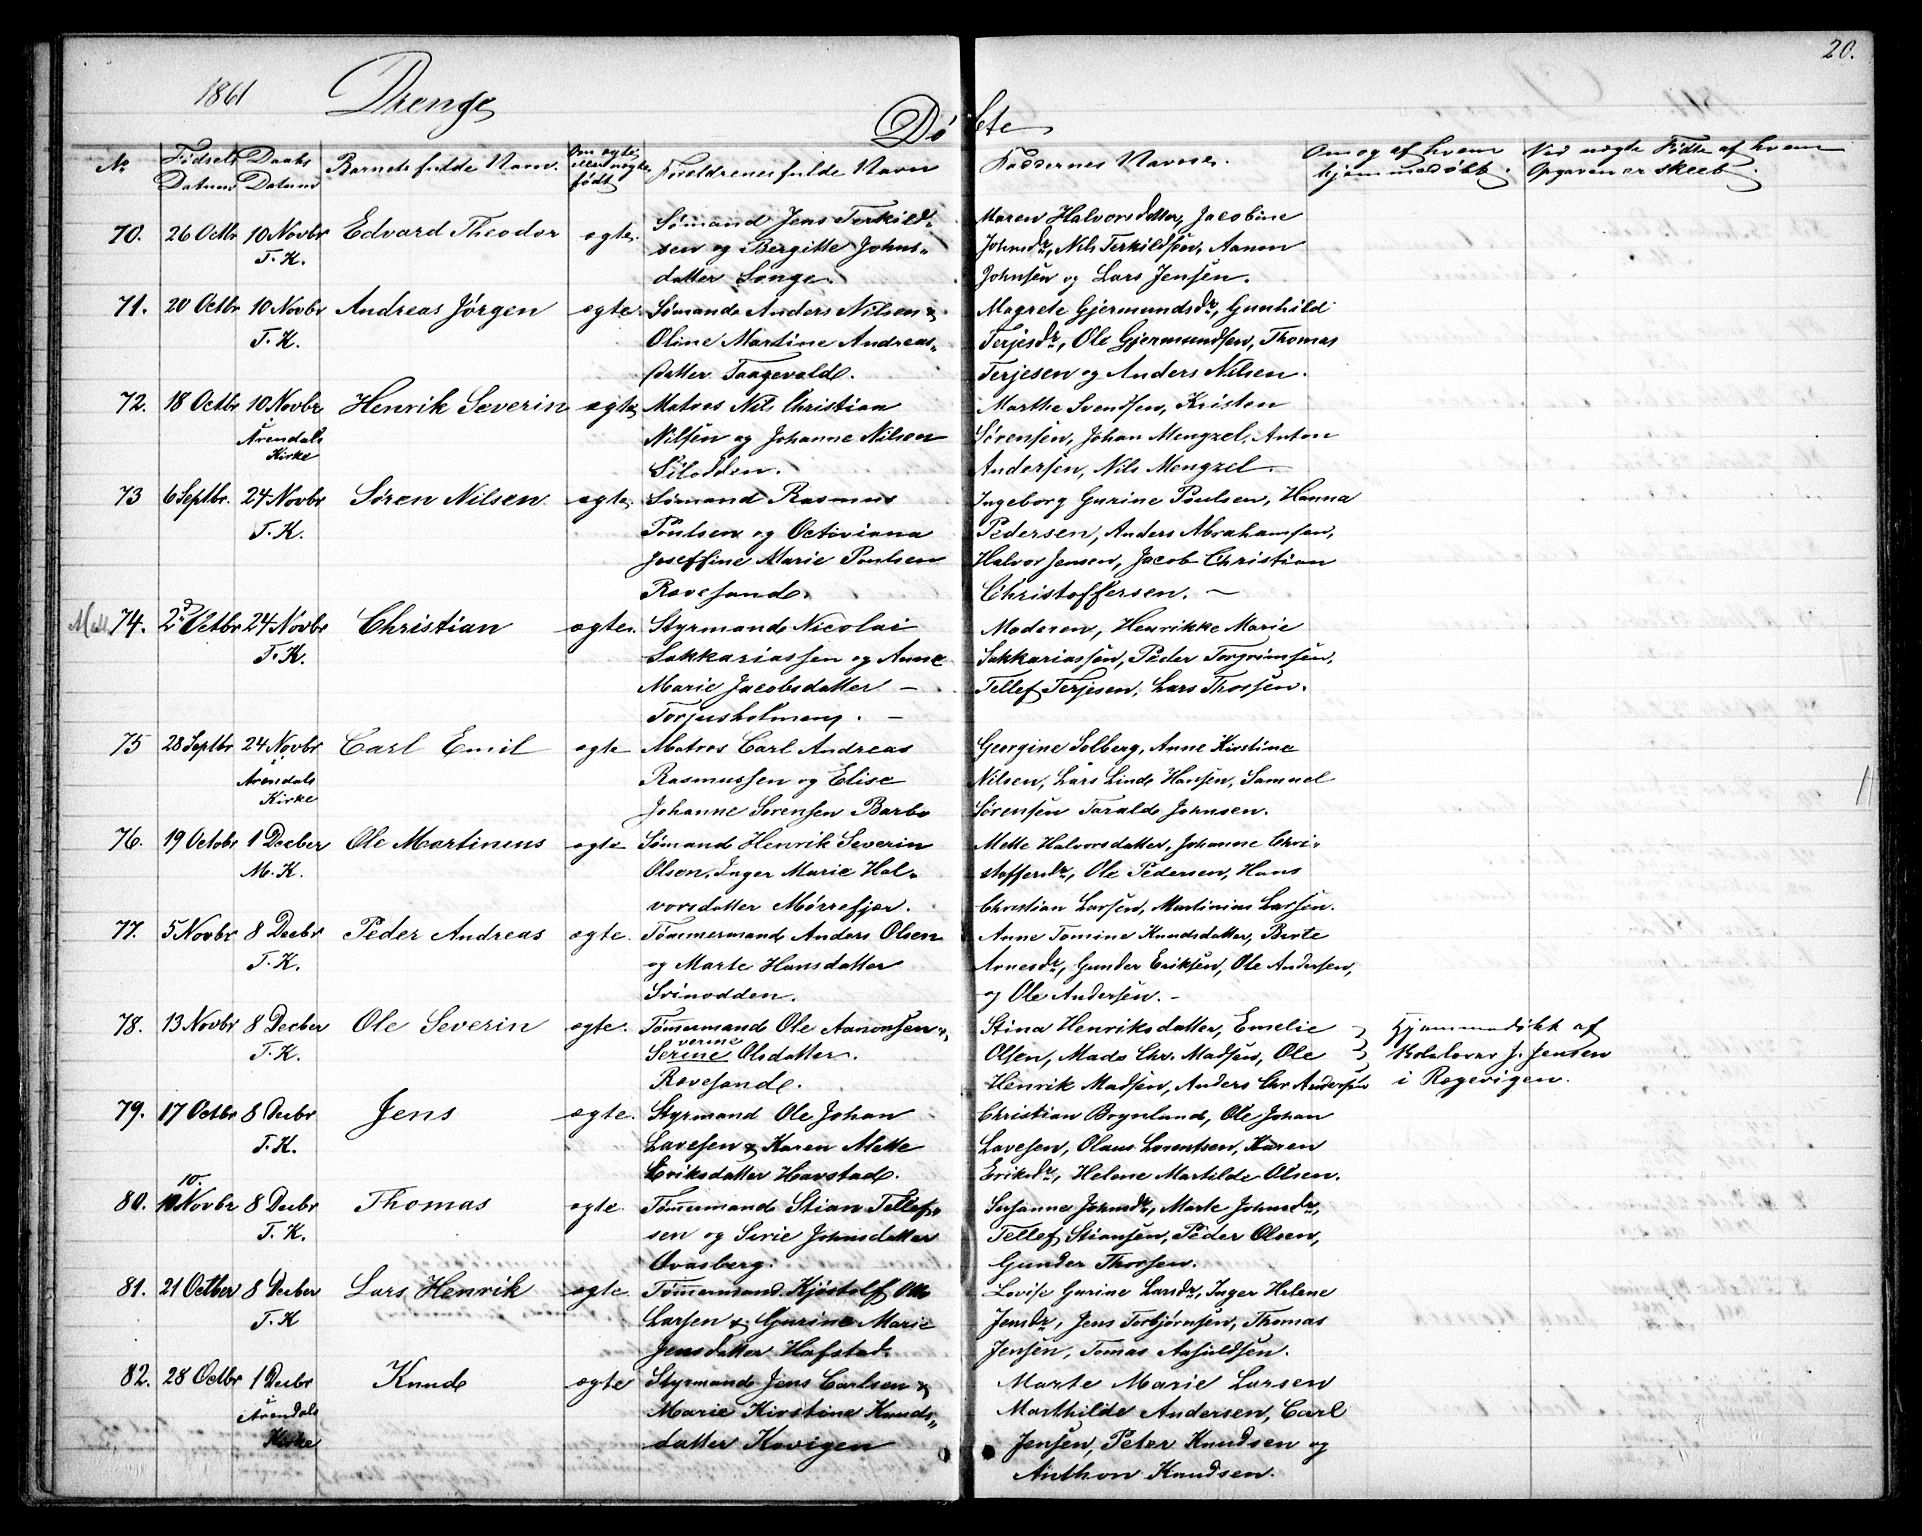 20.
1861 Drenge
Døbte
No
Fødsels Datum
Daabs Datum
Barnets fulde Navn.
Om ægte eller uægte født
Forældrenes fulde Navn
Faddernes Navne.
Om og af hvem hjemmedøbt.
Ved uægte Fødte af hvem Opgaven er skeed.
70. 26 Octbr 10 Novbr Edvard Theodor ægte. Sømand Jens Terkild- Maren Halvorsdatter, Jacobine
T. K. sen og Bergitte Johns- Johnsdr, Nils Terkildsen, Aanon
datter Songe. Johnsen og Lars Jensen.
71. 20 Octbr 10 Novbr Andreas Jørgen ægte. Sømand Anders Nilsen & Magrete Gjermundsdr, Gunhild
T. K. Oline Martine Andreas- Terjesdr, Ole Gjermundsen, Thomas
datter Taagevold. Terjesen og Anders Nilsen.
72. 18 Octbr 10 Novbr Henrik Severin ægte Matros Nils Christian Marthe Svendsen, Kristen
Arendals Nilsen og Johanne Nilsen Sørensen, Johan Mengzel, Anton
Kirke Silodden. Andersen, Nils Mengzel.
73 6 Septbr. 24 Novbr Søren Nilsen ægte. Sømand Rasmus Ingeborg Gurine Poulsen, Hanna
T. K. Poulsen og Octiviana Pedersen, Anders Abrahamsen,
Joseffine Marie Poulsen Halvor Jensen, Jacob Christian
Revesand. Christoffersen. —
74. 2d Octbr 24 Novbr Christian ægte. Styrmand Nicolai Moderen, Henrikke Marie
T. K. Sakkariassen og Anne Sakkariassen, Peder Torgrimsen,
Marie Jacobsdatter — Tellef Terjesen, Lars Thorsen.
Torjusholmen. —
75 28 Septbr 24 Novbr Carl Emil ægte Matros Carl Andreas Georgine Solberg, Anne Kirstine
Arendals Rasmussen og Elise Nilsen, Lars Lind Hansen, Samuel
Kirke Johanne Sørensen Barbo Sørensen Tarald Johnsen.
76. 19 Octobr 1 Decber Ole Martinius ægte Sømand Henrik Severin Mette Halvorsdatter, Johanne Chri-
M. K. Olsen, Inger Marie Hal- stoffersdr, Ole Pedersen, Hans
vorsdatter Mørrefjær. Christian Larsen, Martinius Larsen.
77. 5 Novbr 8 Decbr Peder Andreas ægte. Tømmermand Anders Olsen Anne Tomine Knudsdatter, Berte
T. K. og Marte Hansdatter Arnesdr, Gunder Eriksen, Ole Andersen,
Svinodden. og Ole Andersen. —
78. 13 Novbr 8 Decber Ole Severin ægte. Tømmermand Ole Aanonsen Stina Henriksdatter, Emelie Hjemmedøbt af
T. K. Serine verine Olsdatter. Olsen, Mads Chr. Madsen, Ole Skolelærer J. Jensen
Revesand. Henrik Madsen, Anders Chr Andersen i Rægevigen.
79. 17 Octbr 8 Decbr Jens ægte. Styrmand Ole Johan Christian Bognland, Ole Johan
T. K. Lavesen & Karen Mette Lavesen, Olaus Lorentsen, Karen
Eriksdatter Havstad. Eriksdr, Helene Martilde Olsen.
80. 10. Novbr 8 Decbr Thomas ægte. Tømmermand Stian Tellef- Susanne Johnsdr, Marte Johnsdr,
T. K. sen og Sirie Johnsdatter Tellef Stiansen, Peder Olsen,
Ovasberg. Gunder Thorsen.
81. 21 Octber 8 Decber Lars Henrik ægte Tømmermand Kjøstolf Ole Lovise Gurine Larsdr, Inger Helene
T. K Larsen & Gurine Marie Jensdr, Jens Torbjørnsen, Thomas
Jensdatter Hafstad. Jensen, Tomas Asfuldsen.
82. 28 Octbr 1 Decbr Knud ægte Styrmand Jens Carlsen & Marte Marie Larsen
Arendals Marie Kirstine Knuds- Marthilde Andersen, Carl
Kirke datter Kovigen Jensen, Peter Knudsen og
Anthon Knudsen.